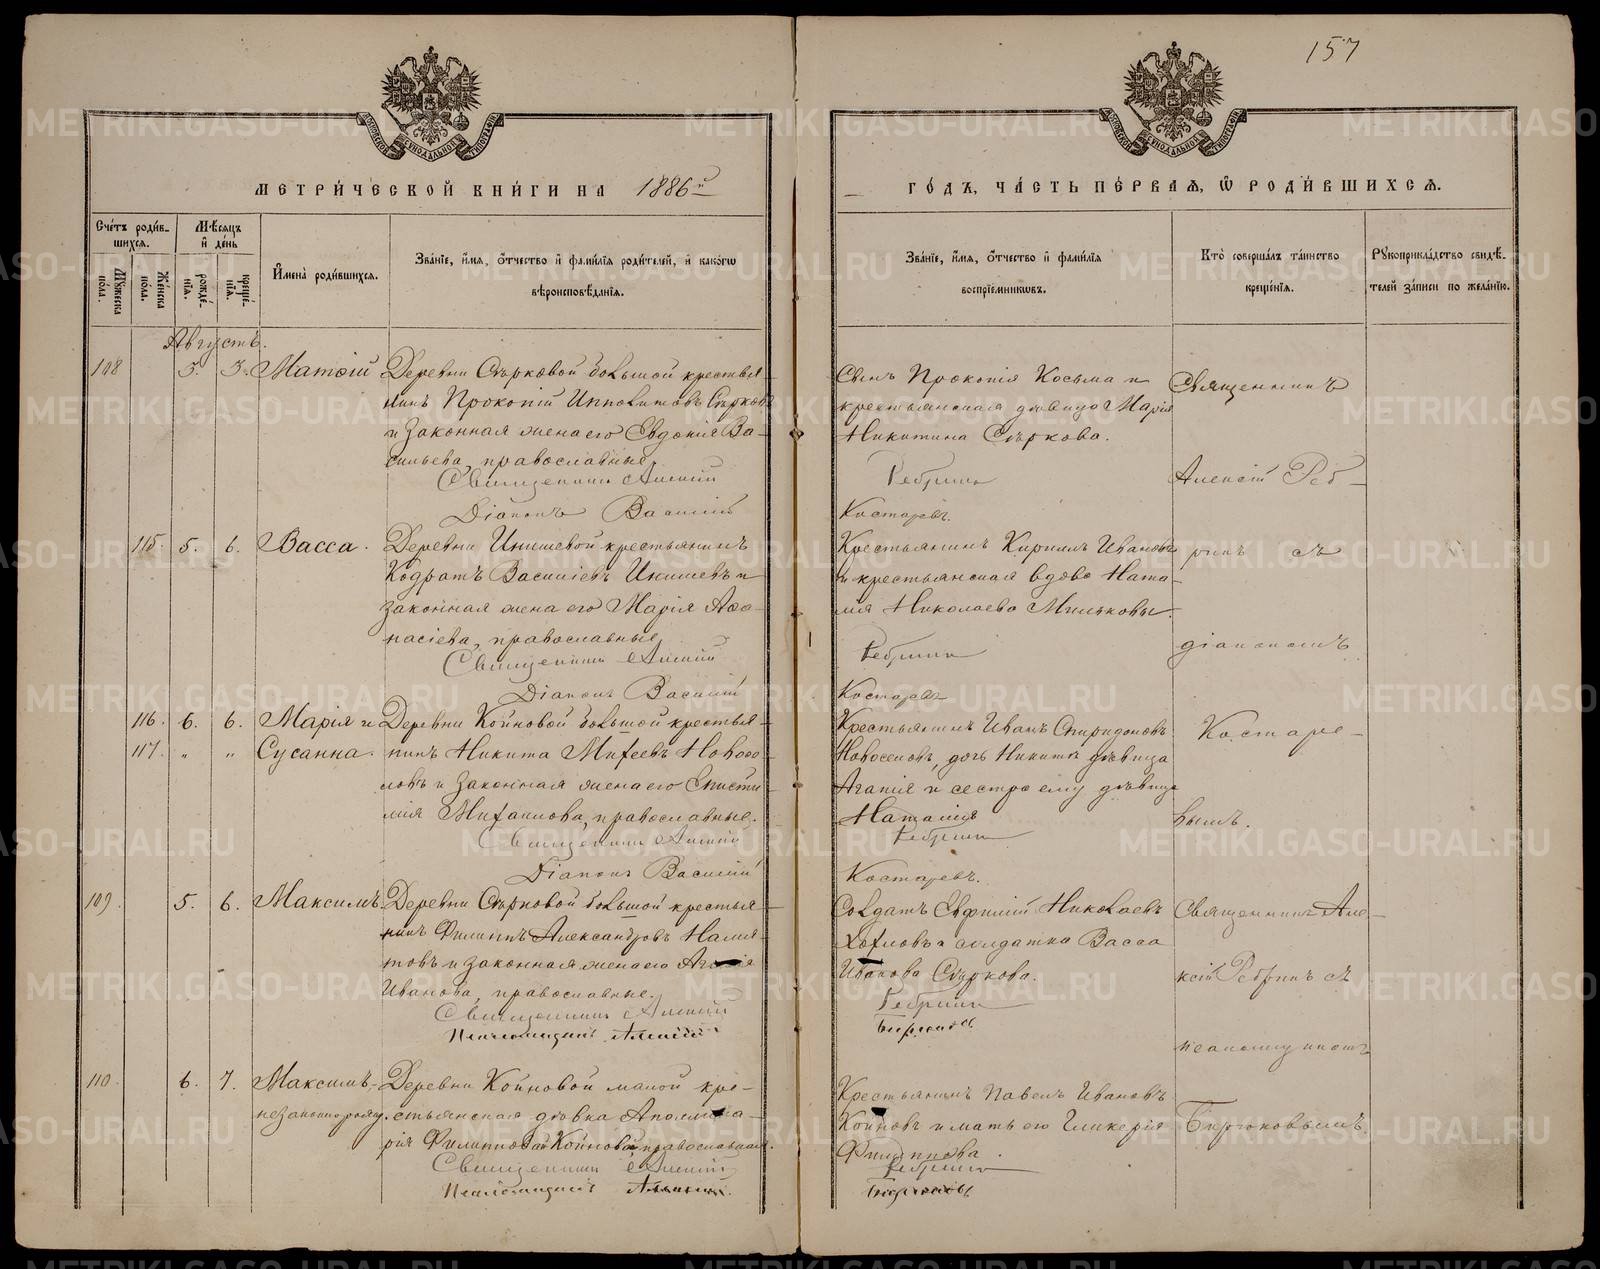 157
МЕТРИ́ЧЕСКОЙ КНИ́ГИ НА 1886й
ГО́ДЪ, ЧА́СТЬ ПЕ́РВАЯ, Ѿ РОДИ́ВШИХСЯ.
Сче́тъ роди́в-
шихся.
Му́жеска по́ла.
Же́нска по́ла.
Мѣ́сяцъ и де́нь
рожде́-
нїя.
креще́-
нїя.
И҆мена̀ роди́вшихся.
Зва́нїе, и҆́мя, о҆́тчество и҆ фами́лїя роди́телей, и҆ како́гѡ
вѣроисповѣ́данїя.
Зва́нїе, и҆́мя, о҆́тчество и҆ фами́лїя
воспрїе́мникѡвъ.
Кто̀ соверша́лъ та́инство
креще́нїя.
Рꙋкоприкла́дство свидѣ́-
телей за́писи по жела́нїю.
Августъ.
108 5. 5. Матѳій
Деревни Сѣрковой большой крестья-
нинъ Прокопій Ипполитовъ Сѣрковъ
и законная жена его Евдокія Ва-
сильева, православные.
Священникъ Алексій
Діаконъ Василій
Сынъ Прокопія Косьма и
крестьянская дѣвица Марія
Никитина Сѣркова.
Ребринъ
Костаревъ.
Священникъ
Алексій Реб-
115. 5. 6. Васса.
Деревни крестьянинъ
Кодратъ Василіевъ и
законная жена его Марія Аѳа-
насіева, православные
Священникъ Алексій
Діаконъ Василій
Крестьянинъ Кирилъ Ивановъ
и крестьянская вдова Ната-
лія Николаева Мильковы
Ребринъ
Костаревъ
ринъ съ
діакономъ
116. 6. 6. Марія и
117. „ „ Сусанна.
Деревни Койновой большой крестья-
нинъ Никита Михеевъ Новосе-
ловъ и законная жена его
Михаилова, православные.
Священникъ Алексій
Діаконъ Василій
Крестьянинъ Иванъ Спиридоновъ
Новоселовъ, дочь Никиты дѣвица
Агапія и сестра ему дѣвица
Наталія
Ребринъ
Костаревъ.
Костаре-
вымъ.
109. 5. 6. Максимъ.
Деревни Сѣрковой большой крестья-
нинъ Филиппъ Александровъ
и законная жена его
Иванова, православные.
Священникъ Алексій
Псаломщикъ Алексій
Солдатъ Евфимій Николаевъ
и солдатка Васса
Иванова Сѣркова.
Ребринъ
Бирюковъ
Священникъ Але-
ксій Ребринъ съ
псаломщикомъ
110. 6. 7. Максимъ-
незаконнорожд.
Деревни Койновой малой кре-
стьянская дѣвка Аполлина-
рія Филиппова Койнова, православная.
Священникъ Алексій
Псаломщикъ Алексій
Крестьянинъ Павелъ Ивановъ
Койновъ и мать его Гликерія
Филиппова.
Ребринъ
Бирюковъ
Бирюковымъ.